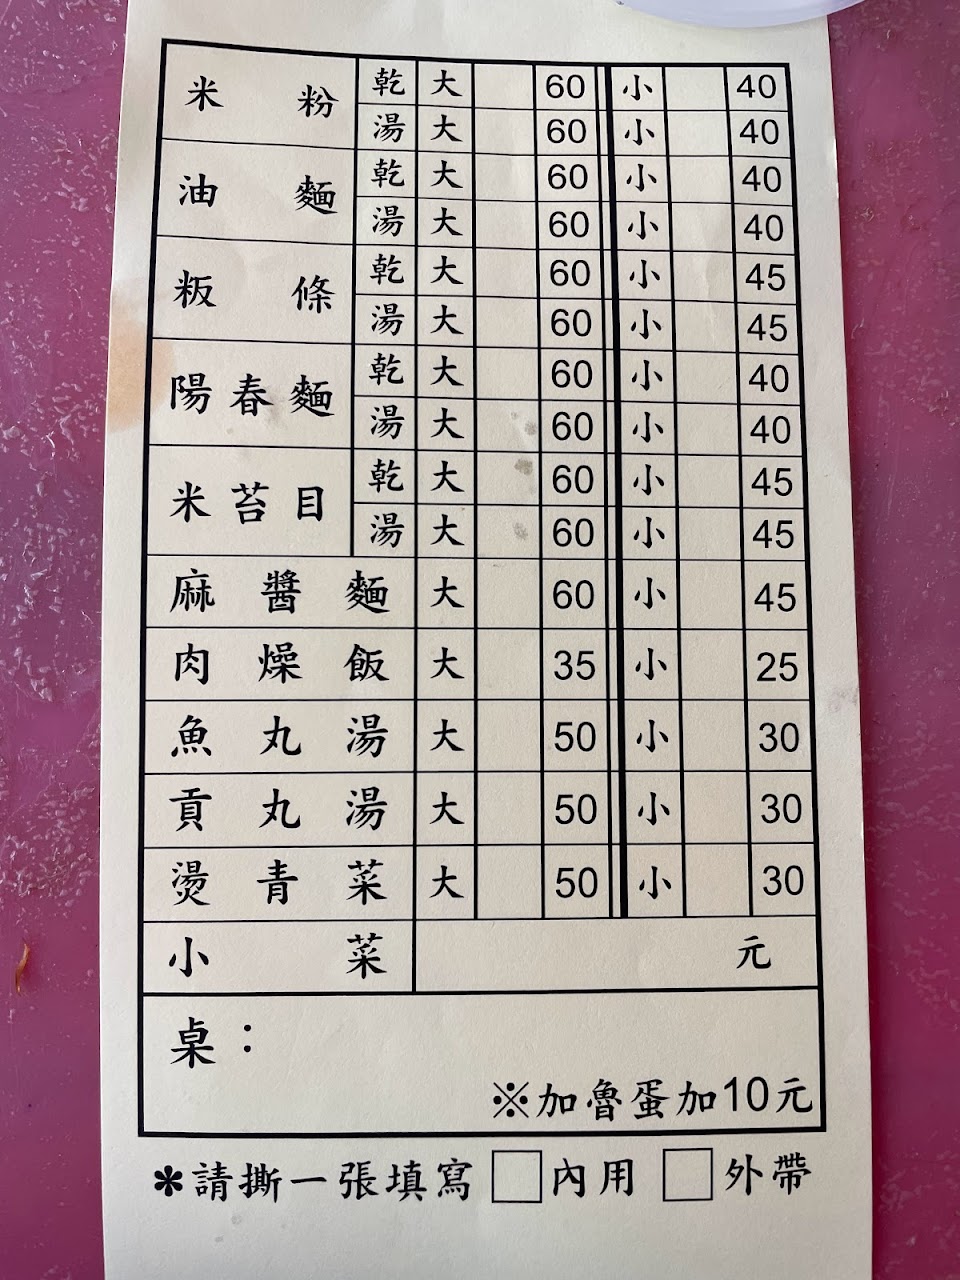 米粉 乾 大 60 小 40
湯 大 60 小 40
油麵 乾 大 60 小 40
湯 大 60 小 40
粄條 乾 大 60 小 45
湯 大 60 小 45
陽春麵 乾 大 60 小 40
湯 大 60 小 40
米苔目 乾 大 60 小 45
湯 大 60 小 45
麻醬麵 大 60 小 45
肉燥飯 大 35 小 25
魚丸湯 大 50 小 30
貢丸湯 大 50 小 30
燙青菜 大 50 小 30
小菜 元
桌：
※加魯蛋加10元
*請撕一張填寫 □內用 □外帶